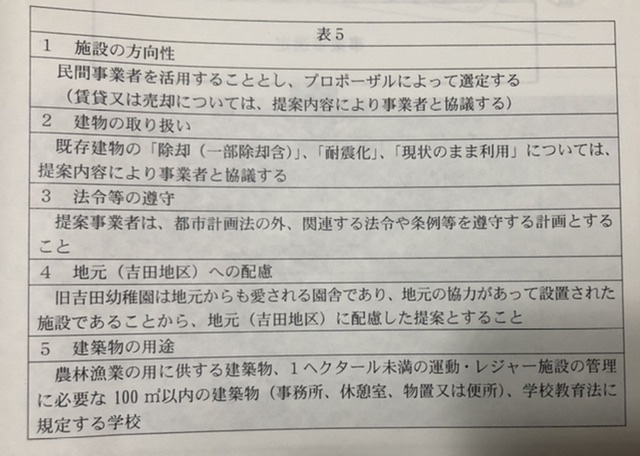 表5
1 施設の方向性
民間事業者を活用することとし、プロポーザルによって選定する
(賃貸又は売却については、提案内容により事業者と協議する)
2 建物の取り扱い
既存建物の「除却(一部除却含)」、「耐震化」、「現状のまま利用」については、
提案内容により事業者と協議する
3 法令等の遵守
提案事業者は、都市計画法の外、関連する法令や条例等を遵守する計画とする
こと
4 地元(吉田地区)への配慮
旧吉田幼稚園は地元からも愛される園舎であり、地元の協力があって設置された
施設であることから、地元(吉田地区)に配慮した提案とすること
5 建築物の用途
農林漁業の用に供する建築物、1ヘクタール未満の運動・レジャー施設の管理
に必要な 100 ㎡以内の建築物(事務所、休憩室、物置又は便所)、学校教育法に
規定する学校